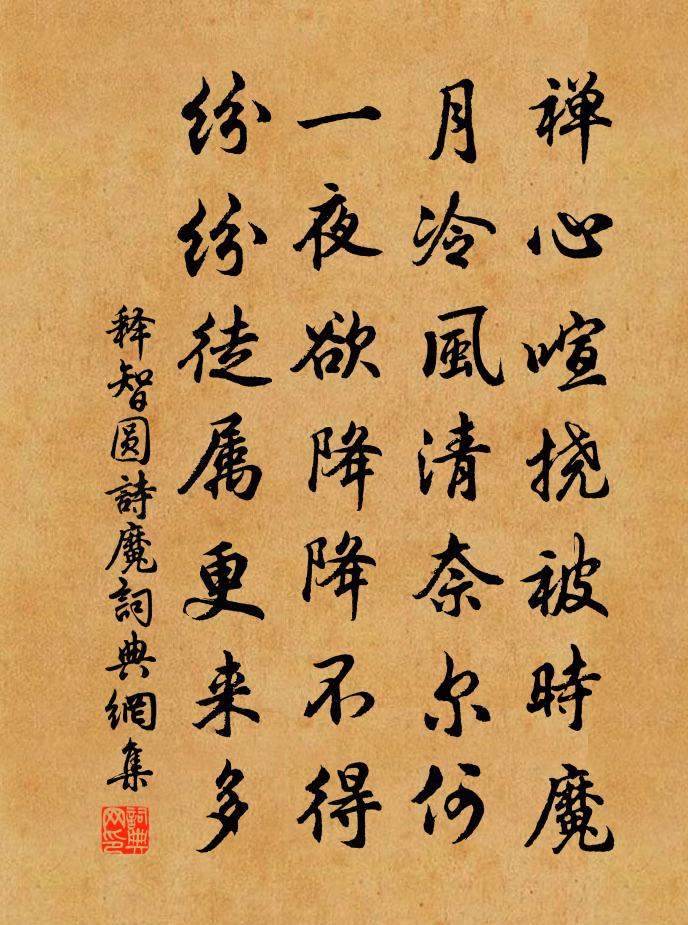 禅心喧挠被時魔
月冷風清奈尔何
一夜欲降降不得
纷纷徒属更来多
释智圆詩魔詞典網集
詞典网印